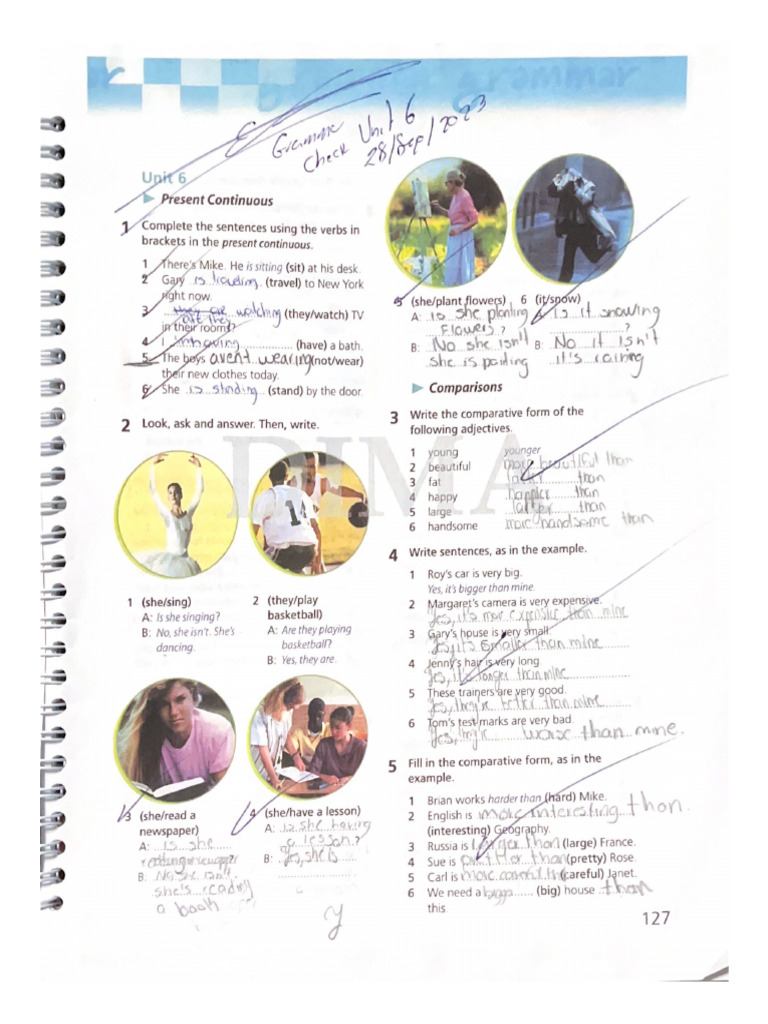 Grammar
Check Unit 6
28/Sep/2023
Unit 6
Present Continuous
1 Complete the sentences using the verbs in
brackets in the present continuous.
1 There's Mike. He is sitting (sit) at his desk.
2 Gary is traveling (travel) to New York
right now.
3 are they watching (they/watch) TV
in their room?
4 I (have) a bath.
5 The boys avent wearing (not/wear)
their new clothes today.
6 She is stending (stand) by the door.
2 Look, ask and answer. Then, write.
14
1 (she/sing)
A: Is she singing?
B: No, she isn't. She's
dancing.
2 (they/play
basketball)
A: Are they playing
basketball?
B: Yes, they are.
3 (she/read a
newspaper)
A: is she
B: No she isn't
she's reading
a book
4 (she/have a lesson)
A: is she having
a lesson?
B: yes, she is
y
5 (she/plant flowers)
A: is she planting
Flowers?
B: No she isn't
she is painting
6 (it/snow)
A: is it snowing
?
B: No it isn't
it's raining
Comparisons
3 Write the comparative form of the
following adjectives.
1 young younger
2 beautiful more beautiful than
3 fat fatter than
4 happy happier than
5 large larger than
6 handsome more handsome than
4 Write sentences, as in the example.
1 Roy's car is very big.
Yes, it's bigger than mine.
2 Margaret's camera is very expensive.
Yes, it's more expensive than mine
3 Gary's house is very small.
Yes, it's smaller than mine
4 Jenny's hair is very long.
Yes, it's longer than mine
5 These trainers are very good.
Yes, they're better than mine.
6 Tom's test marks are very bad.
Yes, they're worse than mine.
5 Fill in the comparative form, as in the
example.
1 Brian works harder than (hard) Mike.
2 English is more interesting than
(interesting) Geography.
3 Russia is larger than (large) France.
4 Sue is prettier than (pretty) Rose.
5 Carl is more (careful) Janet.
6 We need a bigger (big) house than
this.
127
DIMA